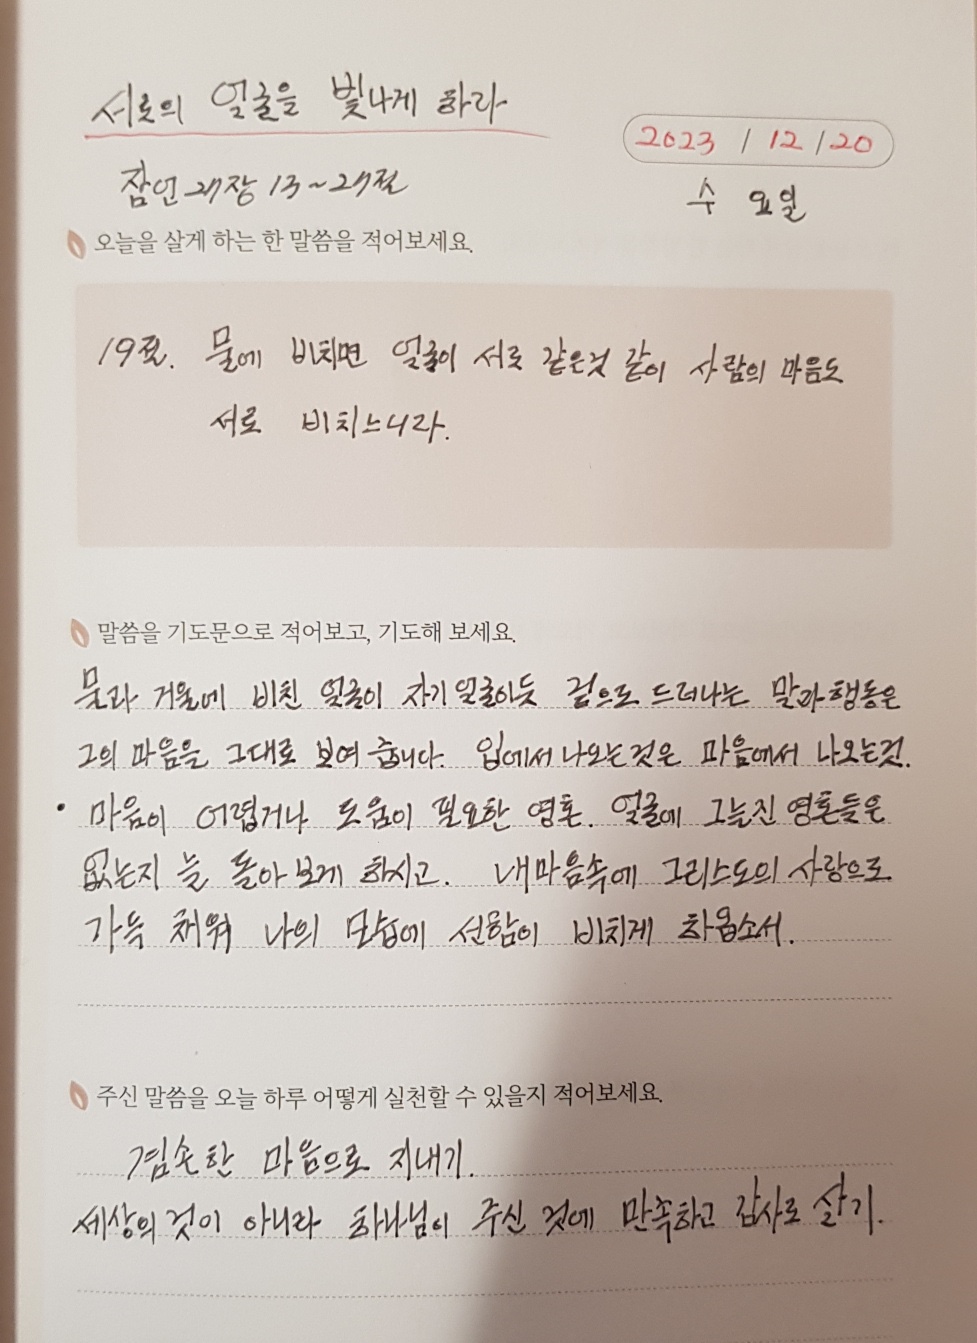 서로의 얼굴을 빛나게 하라
2023 / 12 / 20
잠언 27장 13~27절
수 요일
오늘을 살게 하는 한 말씀을 적어보세요.
19절. 물에 비치면 얼굴이 서로 같은것 같이 사람의 마음도
서로 비치느니라.
말씀을 기도문으로 적어보고, 기도해 보세요.
물과 거울에 비친 얼굴이 자기 얼굴이듯 겉으로 드러나는 말과 행동은
그의 마음을 그대로 보여 줍니다. 입에서 나오는 것은 마음에서 나오는것.
• 마음이 어렵거나 도움이 필요한 영혼. 얼굴에 그늘진 영혼들은
없는지 늘 돌아 보게 하시고. 내마음속에 그리스도의 사랑으로
가득 채워 나의 모습에 선함이 비치게 하옵소서.
주신 말씀을 오늘 하루 어떻게 실천할 수 있을지 적어보세요.
겸손한 마음으로 지내기.
세상의 것이 아니라 하나님이 주신 것에 만족하고 감사로 살기.